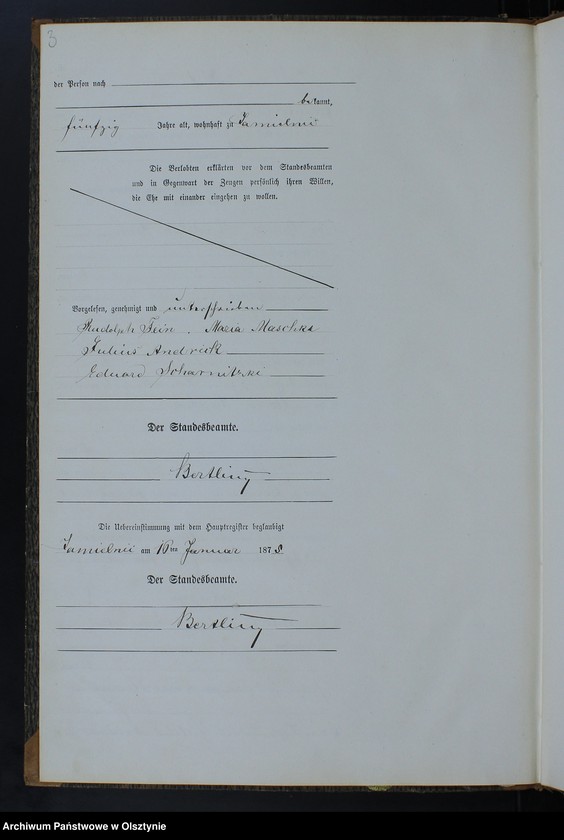 3
der Person nach
bekannt,
fünfzig Jahre alt, wohnhaft zu Jamielnic
Die Verlobten erklärten vor dem Standesbeamten
und in Gegenwart der Zeugen persönlich ihren Willen,
die Ehe mit einander eingehen zu wollen.
Vorgelesen, genehmigt und unterschrieben
Rudolph Fein. Maria Maschka
Julius Andrick
Eduard Scharnitzki
Der Standesbeamte.
Bertling
Die Uebereinstimmung mit dem Hauptregister beglaubigt
am 16ten Januar 1875
Der Standesbeamte.
Bertling
Archiwum Państwowe w Olsztynie